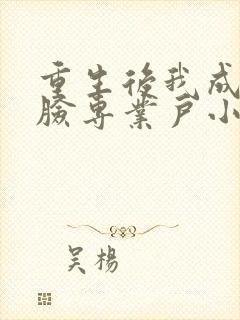 重生後我成
臉專業戶小
吴楊